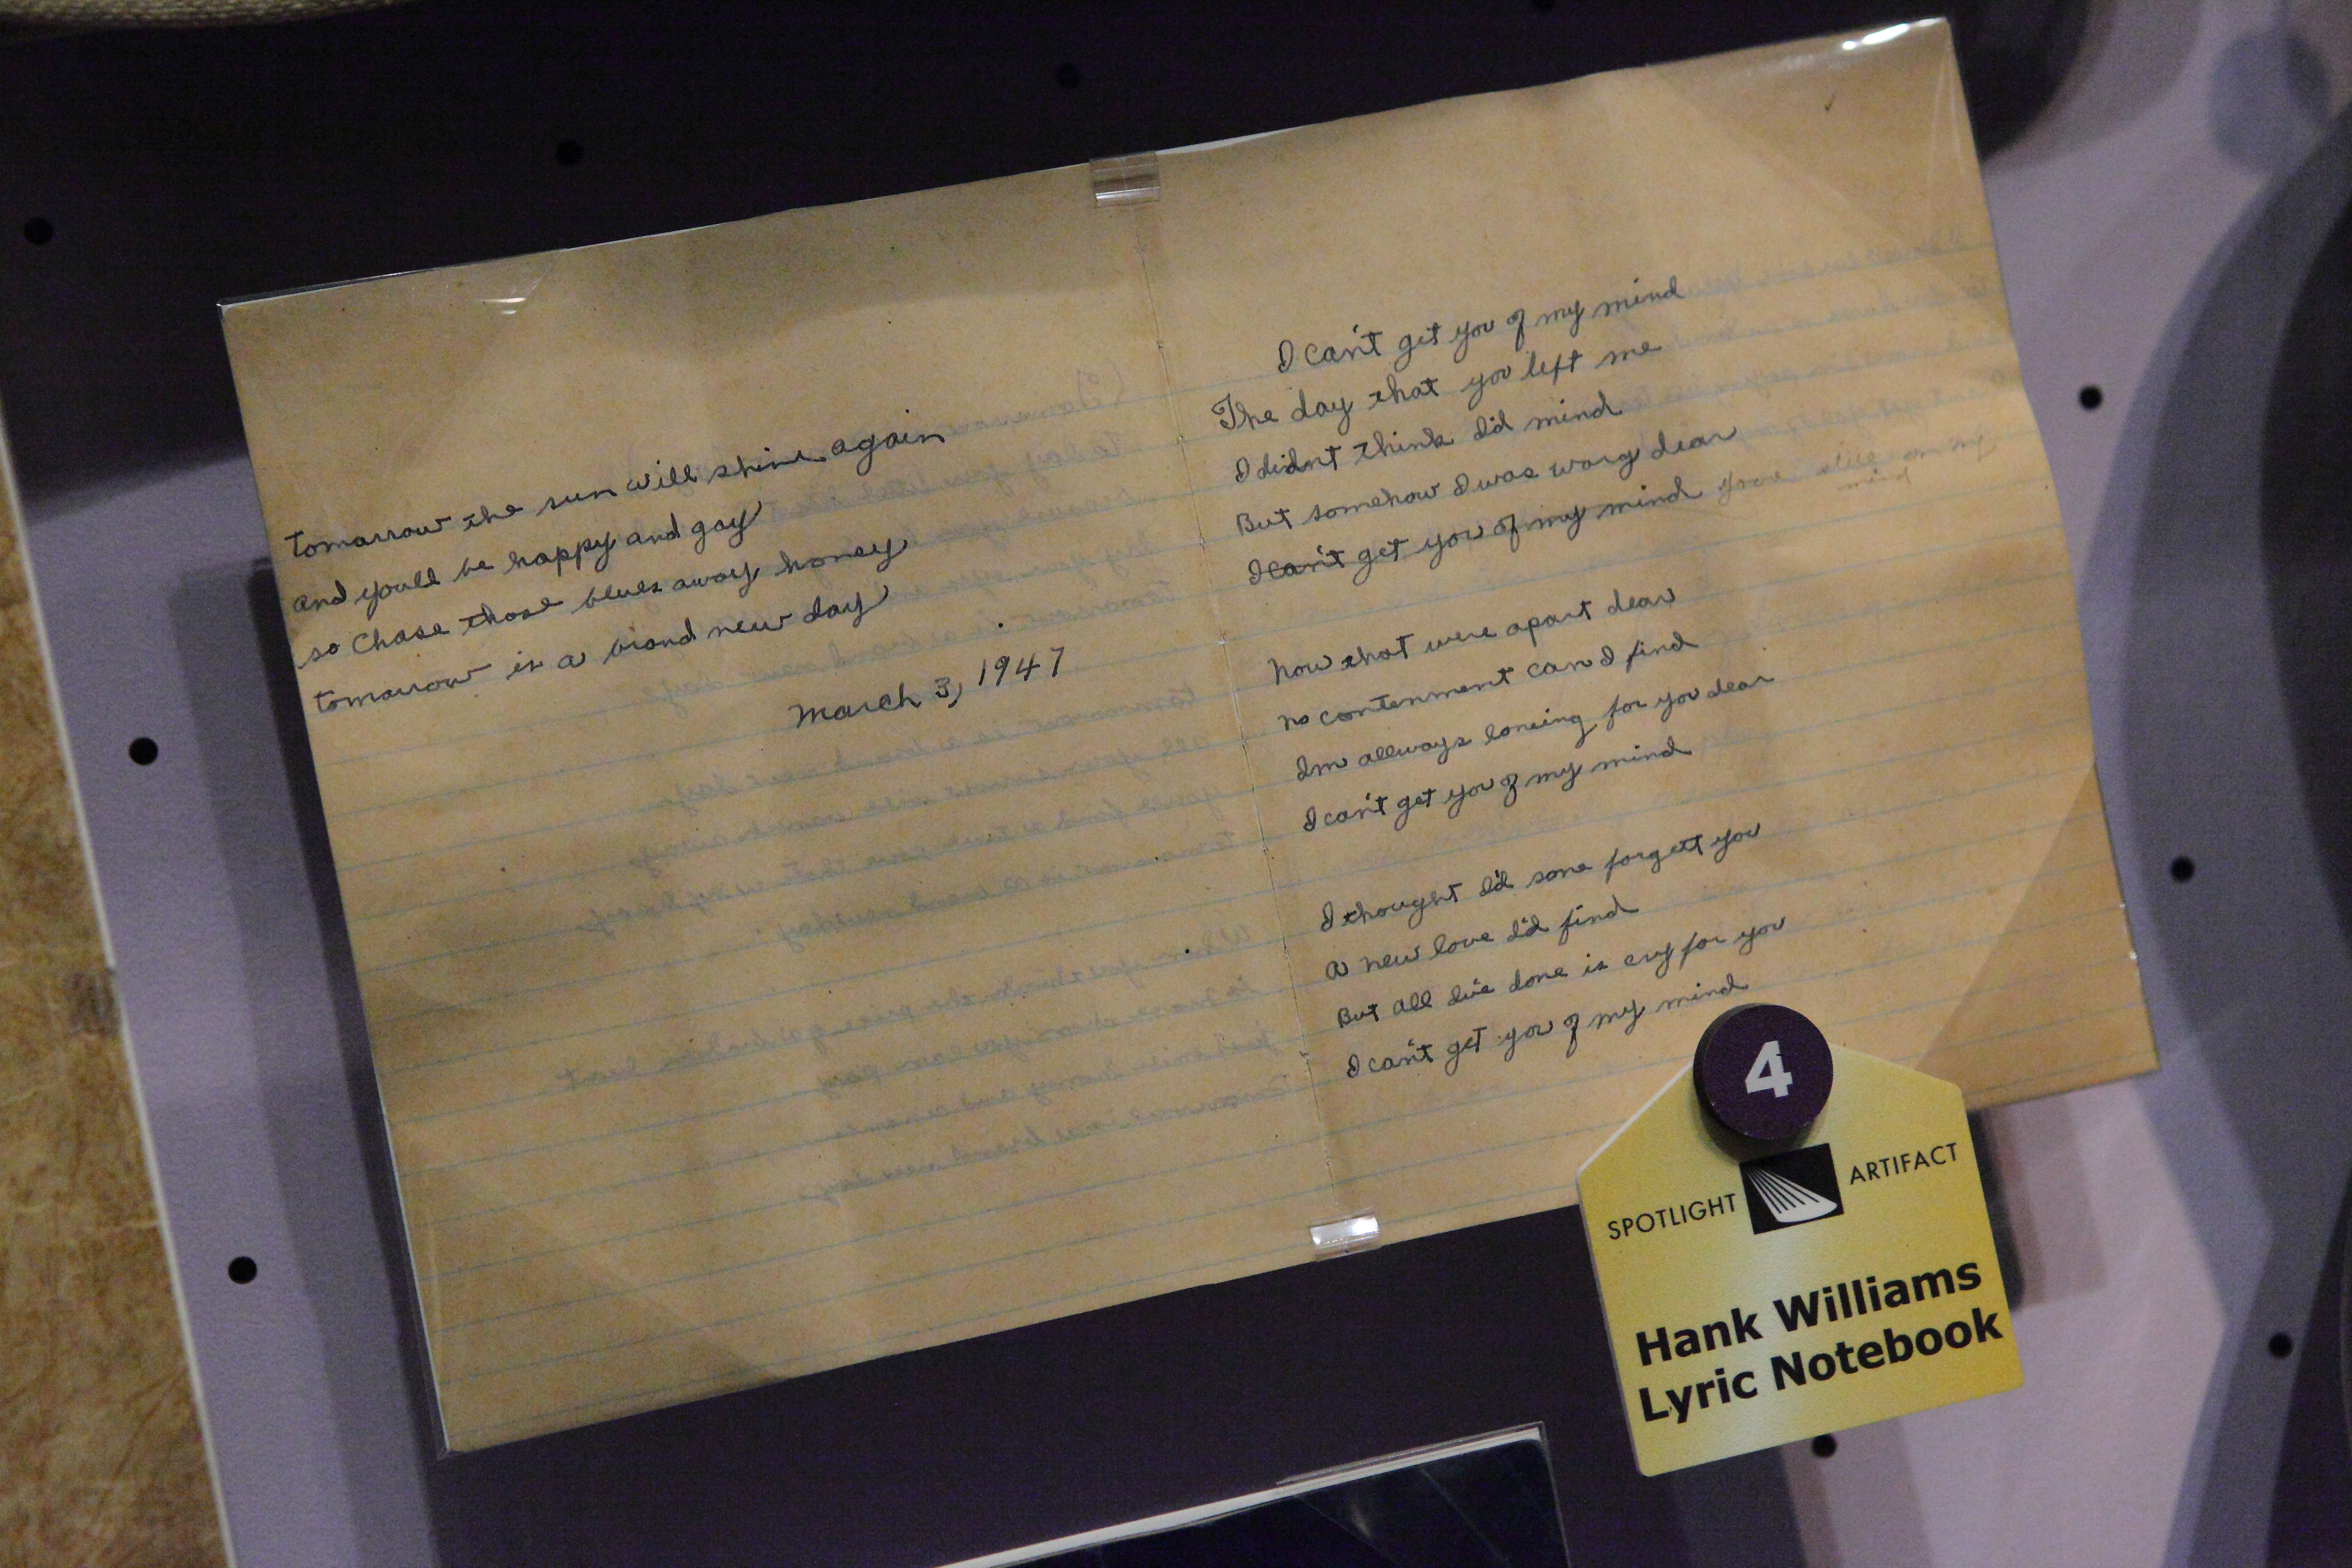 tomarrow the sun will shine again
and youll be happy and gay
so Chase those blues away honey
tomarrow is a brand new day
March 3, 1947
I can't get you of my mind
The day that you left me
I didn't think I'd mind
But somehow I was worg dear
I can't get you of my mind youre still on my
mind
now that were apart dear
no contenment can I find
Im allways loneing for you dear
I can't get you of my mind
I thought I'd sone forgett you
a new love I'd find
But all I've done is cry for you
I can't get you of my mind
4
SPOTLIGHT ARTIFACT
Hank Williams
Lyric Notebook